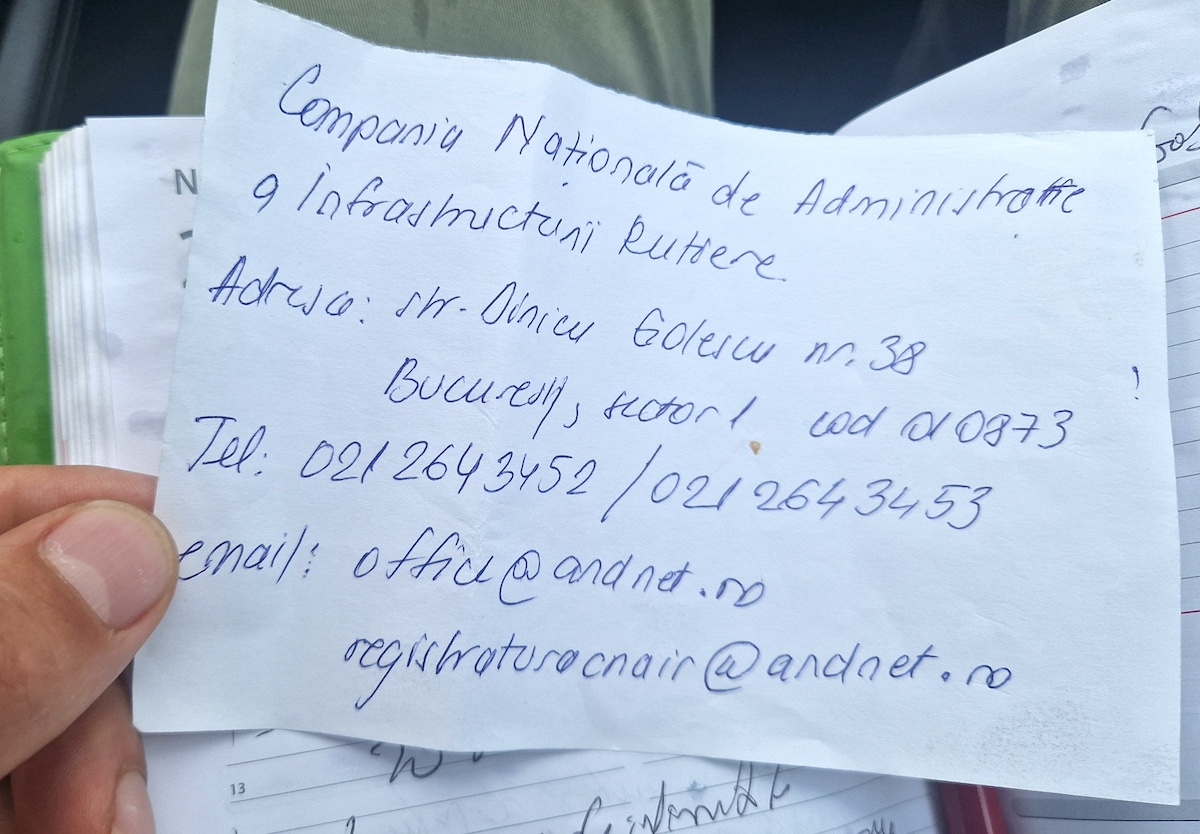 Compania Națională de Administrație
a Infrastructurii Rutiere
Adresa: str. Dinicu Golescu nr. 38
București, sector 1 cod 010873
Tel: 021 264 3452 / 021 264 3453
email: office@andnet.ro
registraturacnair@andnet.ro
N
13